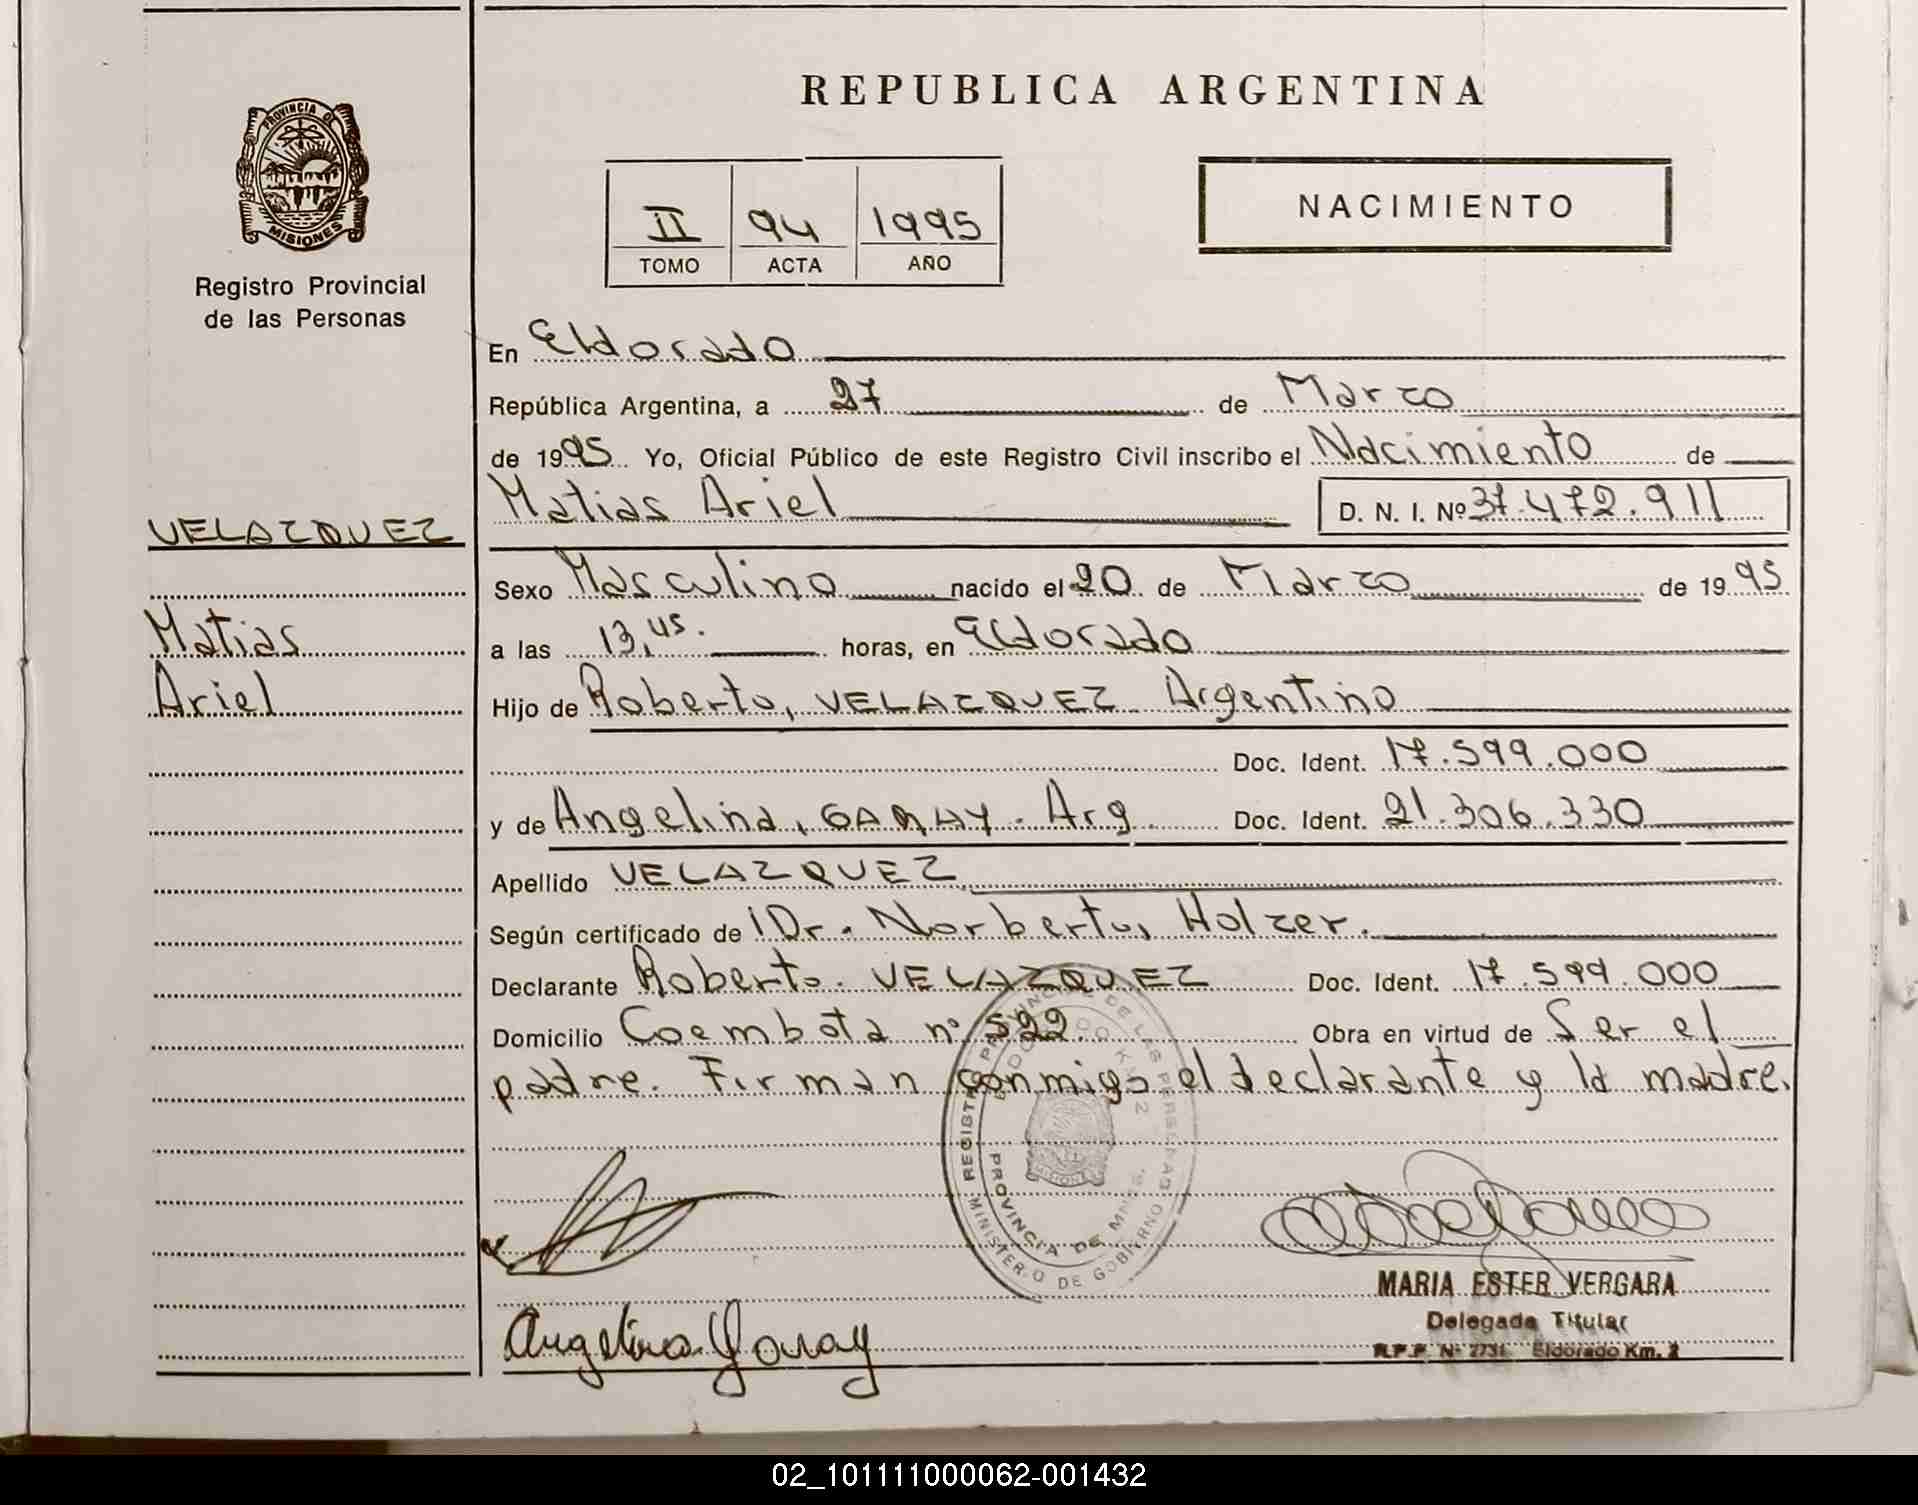 REPUBLICA ARGENTINA
PROVINCIA DE
MISIONES
Registro Provincial
de las Personas
II 94 1995
TOMO ACTA AÑO
NACIMIENTO
En Eldorado
República Argentina, a 27 de Marzo
de 1995 Yo, Oficial Público de este Registro Civil inscribo el Nacimiento de
Matias Ariel D. N. I. Nº 37.472.911
VELAZQUEZ
Sexo Masculino nacido el 20 de Marzo de 1995
Matias
a las 13,45. horas, en Eldorado
Ariel
Hijo de Roberto, VELAZQUEZ Argentino
Doc. Ident. 17.599.000
y de Angelina, GARAY. Arg. Doc. Ident. 21.306.330
Apellido VELAZQUEZ
Según certificado de Dr. Norberto, Holzer.
Declarante Roberto. VELAZQUEZ Doc. Ident. 17.599.000
Domicilio Coembota nº 522 Obra en virtud de Ser el
padre. Firman conmigo el declarante y la madre.
REGISTRO PROVINCIAL DE LAS PERSONAS
PROVINCIA DE MNES.
MINISTERIO DE GOBIERNO
MARIA ESTER VERGARA
Delegada Titular
R.P.P. Nº 2731 Eldorado Km. 2
Angelina Garay
02_101111000062-001432